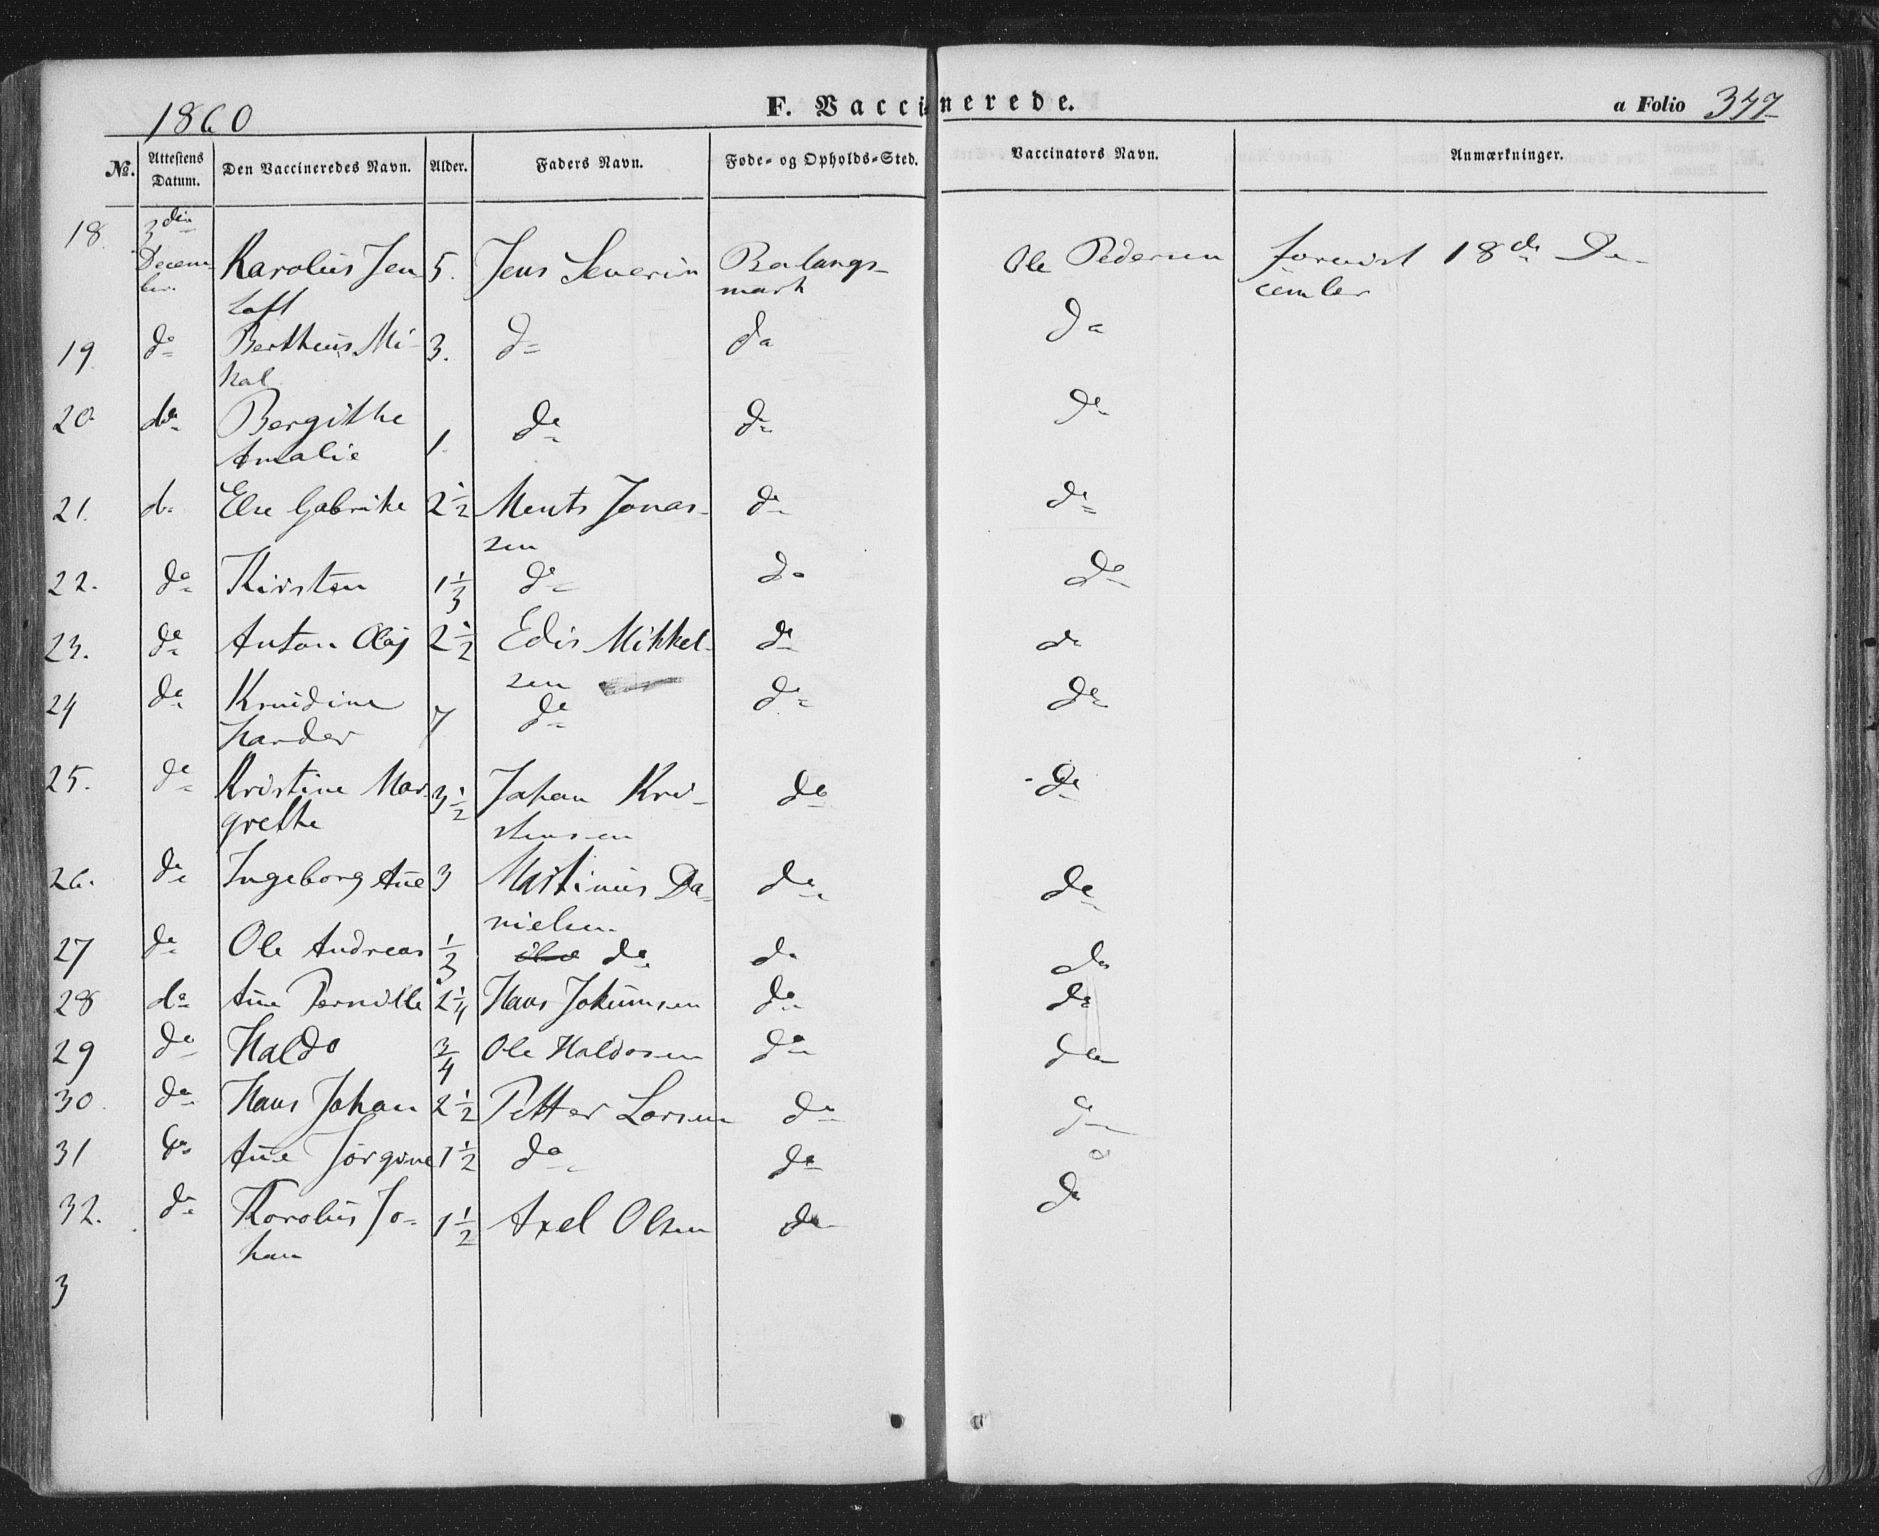 1860 F. Vaccinerede. a Folio 347
No. Attestens Datum. Den Vaccineredes Navn. Alder. Faders Navn. Føde- og Opholds-Sted. Vaccinators Navn. Anmærkninger.
18. 3die
Decem- Karolius Jen 5. Jens Severin Balangs- Ole Pedersen forevist 18de De-
ber. toft mark cember
19. do Bertheus Mi- 3. do do do
kal
20. do Bergithe do do do
Amalie 1.
21. do Else Gabrike 2 1/2 Ments Jonas- do do
sen
22. do Kirsten 1 1/3 do do do
23. do Anton Olaj 2 1/2 Edis Mikkel- do do
sen
24 do Knudine 7 do do do
Harder
25. do Kristine Mar- 3 1/2 Johan Kri- do do
grethe stensen
26. do Ingeborg Ane 3 Martinus Da- do do
nielsen
27 do Ole Andreas 1/3 do do do
28 do Ane Pernille 2 1/4 Hans Jokumsen do do
29 do Haldo 3/4 Ole Haldosen do do
30. do Hans Johan 2 1/2 Petter Larsen do do
31 do Ane Jørgine 1 1/2 do do
32. do Karolius Jo- 1 1/2 Axel Olsen do do
han
3